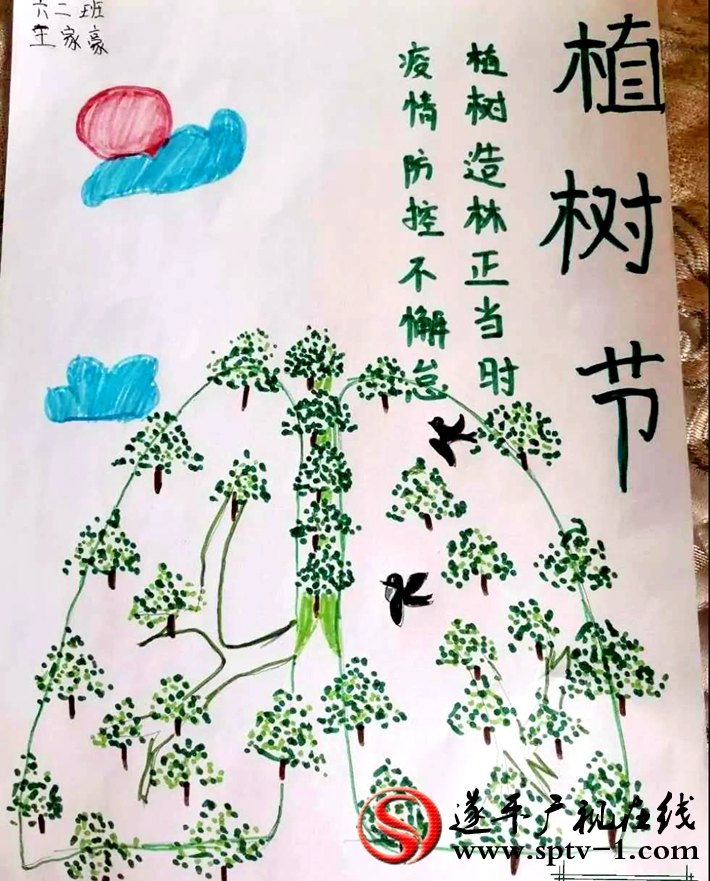 六二班
王家豪
植树节
植树造林正当时
疫情防控不懈怠
遂平广视在线
www.sptv-1.com